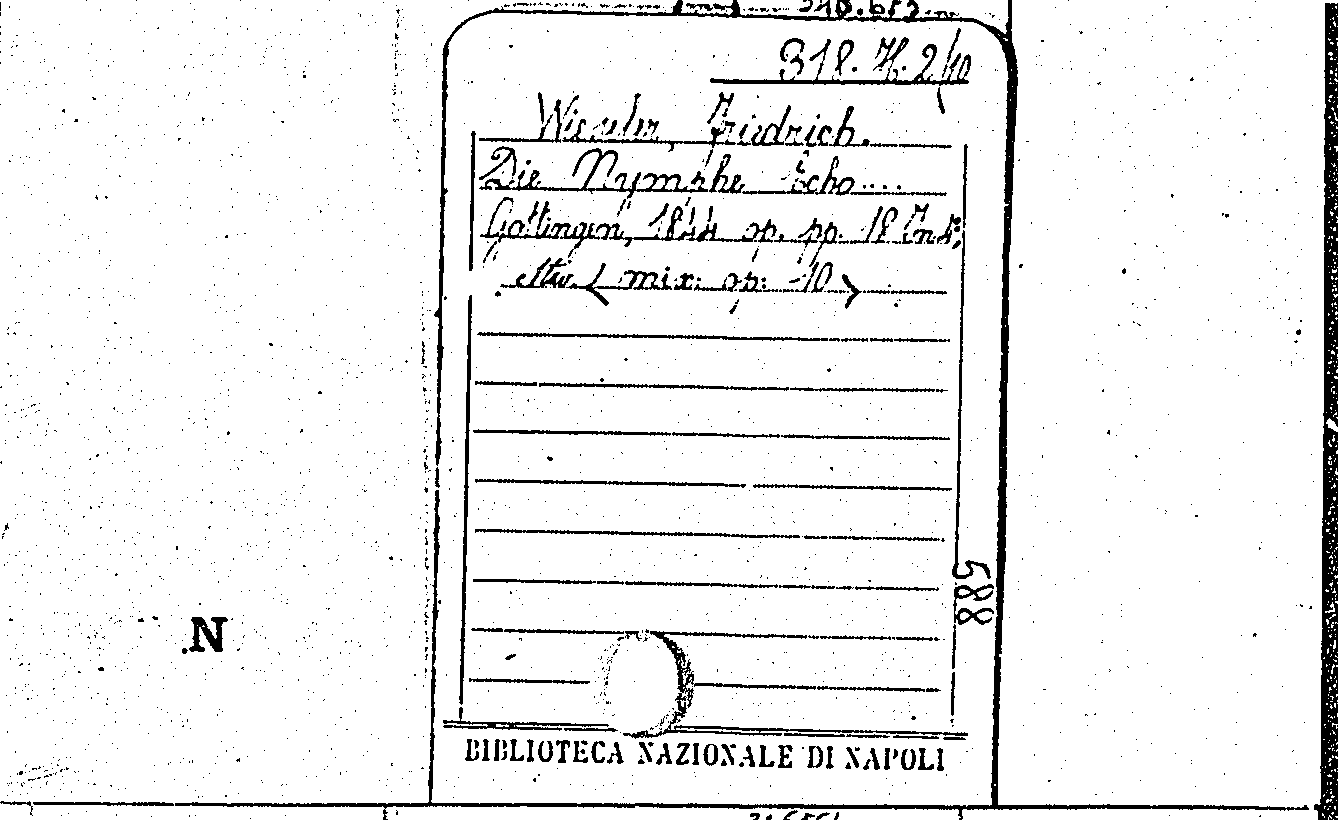 318. H. 2/10
Wieseler, Friedrich.
Die Nymphe Echo....
Gottingen, 1844 op. pp. 18 In 8;
mix: op: 10
588
N
BIBLIOTECA NAZIONALE DI NAPOLI